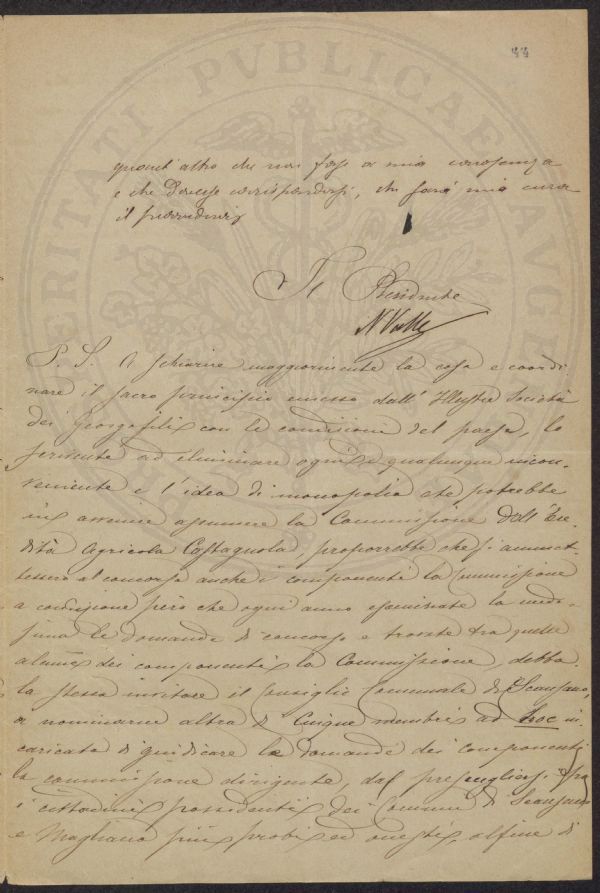 44
quant'altro che non fosse a mia conoscenza
e che dovesse corrispondersi, che sarà mia cura
il
Il Presidente
N Valle
P. S. A schiarire maggiormente la cosa e coordi
nare il sacro principio emesso dall' Illustre Società
dei Georgofili con le condizioni del paese, lo
scrivente ad eliminare ogni e qualunque incon-
veniente e l'idea di monopolio che potrebbe
in avvenire assumere la Commissione dell'Ere-
dità Agricola Castagnola, proporrebbe che si ammet-
tessero al concorso anche i componenti la Commissione
a condizione però che ogni anno esaminate la mede-
sima le domande di concorso e trovate tra quelle
alcune dei componenti la Commissione, debba
la stessa invitare il Consiglio Comunale di Scansano,
a nominarne altra di Cinque membri ad hoc in-
caricata di giudicare le domande dei componenti
la commissione dirigente, da fra
i cittadini possidenti dei Comuni di Scansano
e Magliano più probi ed onesti, alfine di
VERITATI PVBLICAE AVGE